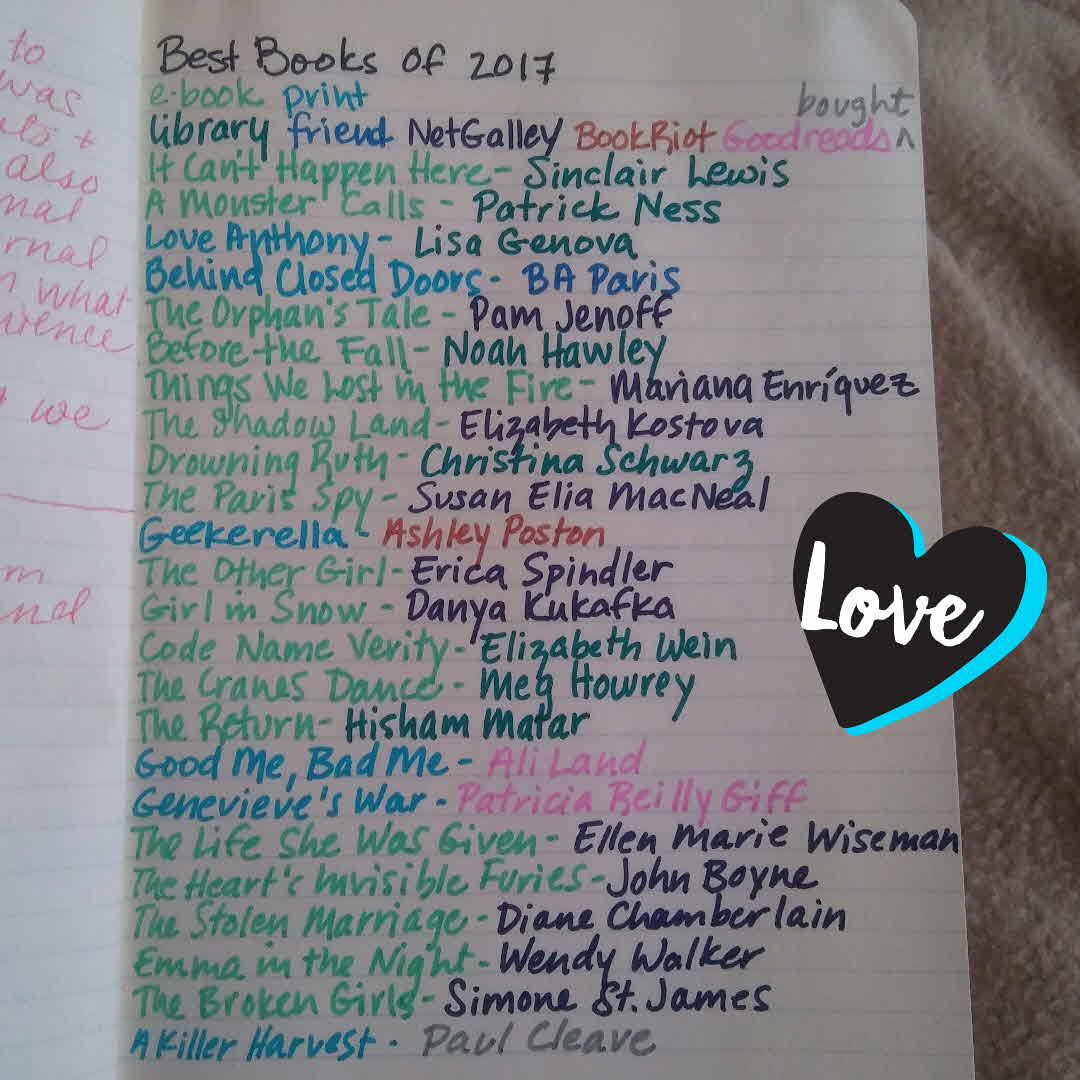 to
was
also
what
we
Best Books of 2017
e-book print
bought
library friend NetGalley BookRiot Goodreads ^
It Can't Happen Here - Sinclair Lewis
A Monster Calls - Patrick Ness
Love Anthony - Lisa Genova
Behind Closed Doors - BA Paris
The Orphan's Tale - Pam Jenoff
Before the Fall - Noah Hawley
Things We Lost in the Fire - Mariana Enríquez
The Shadow Land - Elizabeth Kostova
Drowning Ruth - Christina Schwarz
The Paris Spy - Susan Elia MacNeal
Geekerella - Ashley Poston
The Other Girl - Erica Spindler
Girl in Snow - Danya Kukafka
Code Name Verity - Elizabeth Wein
The Cranes Dance - Meg Howrey
The Return - Hisham Matar
Good Me, Bad Me - Ali Land
Genevieve's War - Patricia Reilly Giff
The Life She Was Given - Ellen Marie Wiseman
The Heart's Invisible Furies - John Boyne
The Stolen Marriage - Diane Chamberlain
Emma in the Night - Wendy Walker
The Broken Girls - Simone St. James
A Killer Harvest - Paul Cleave
Love